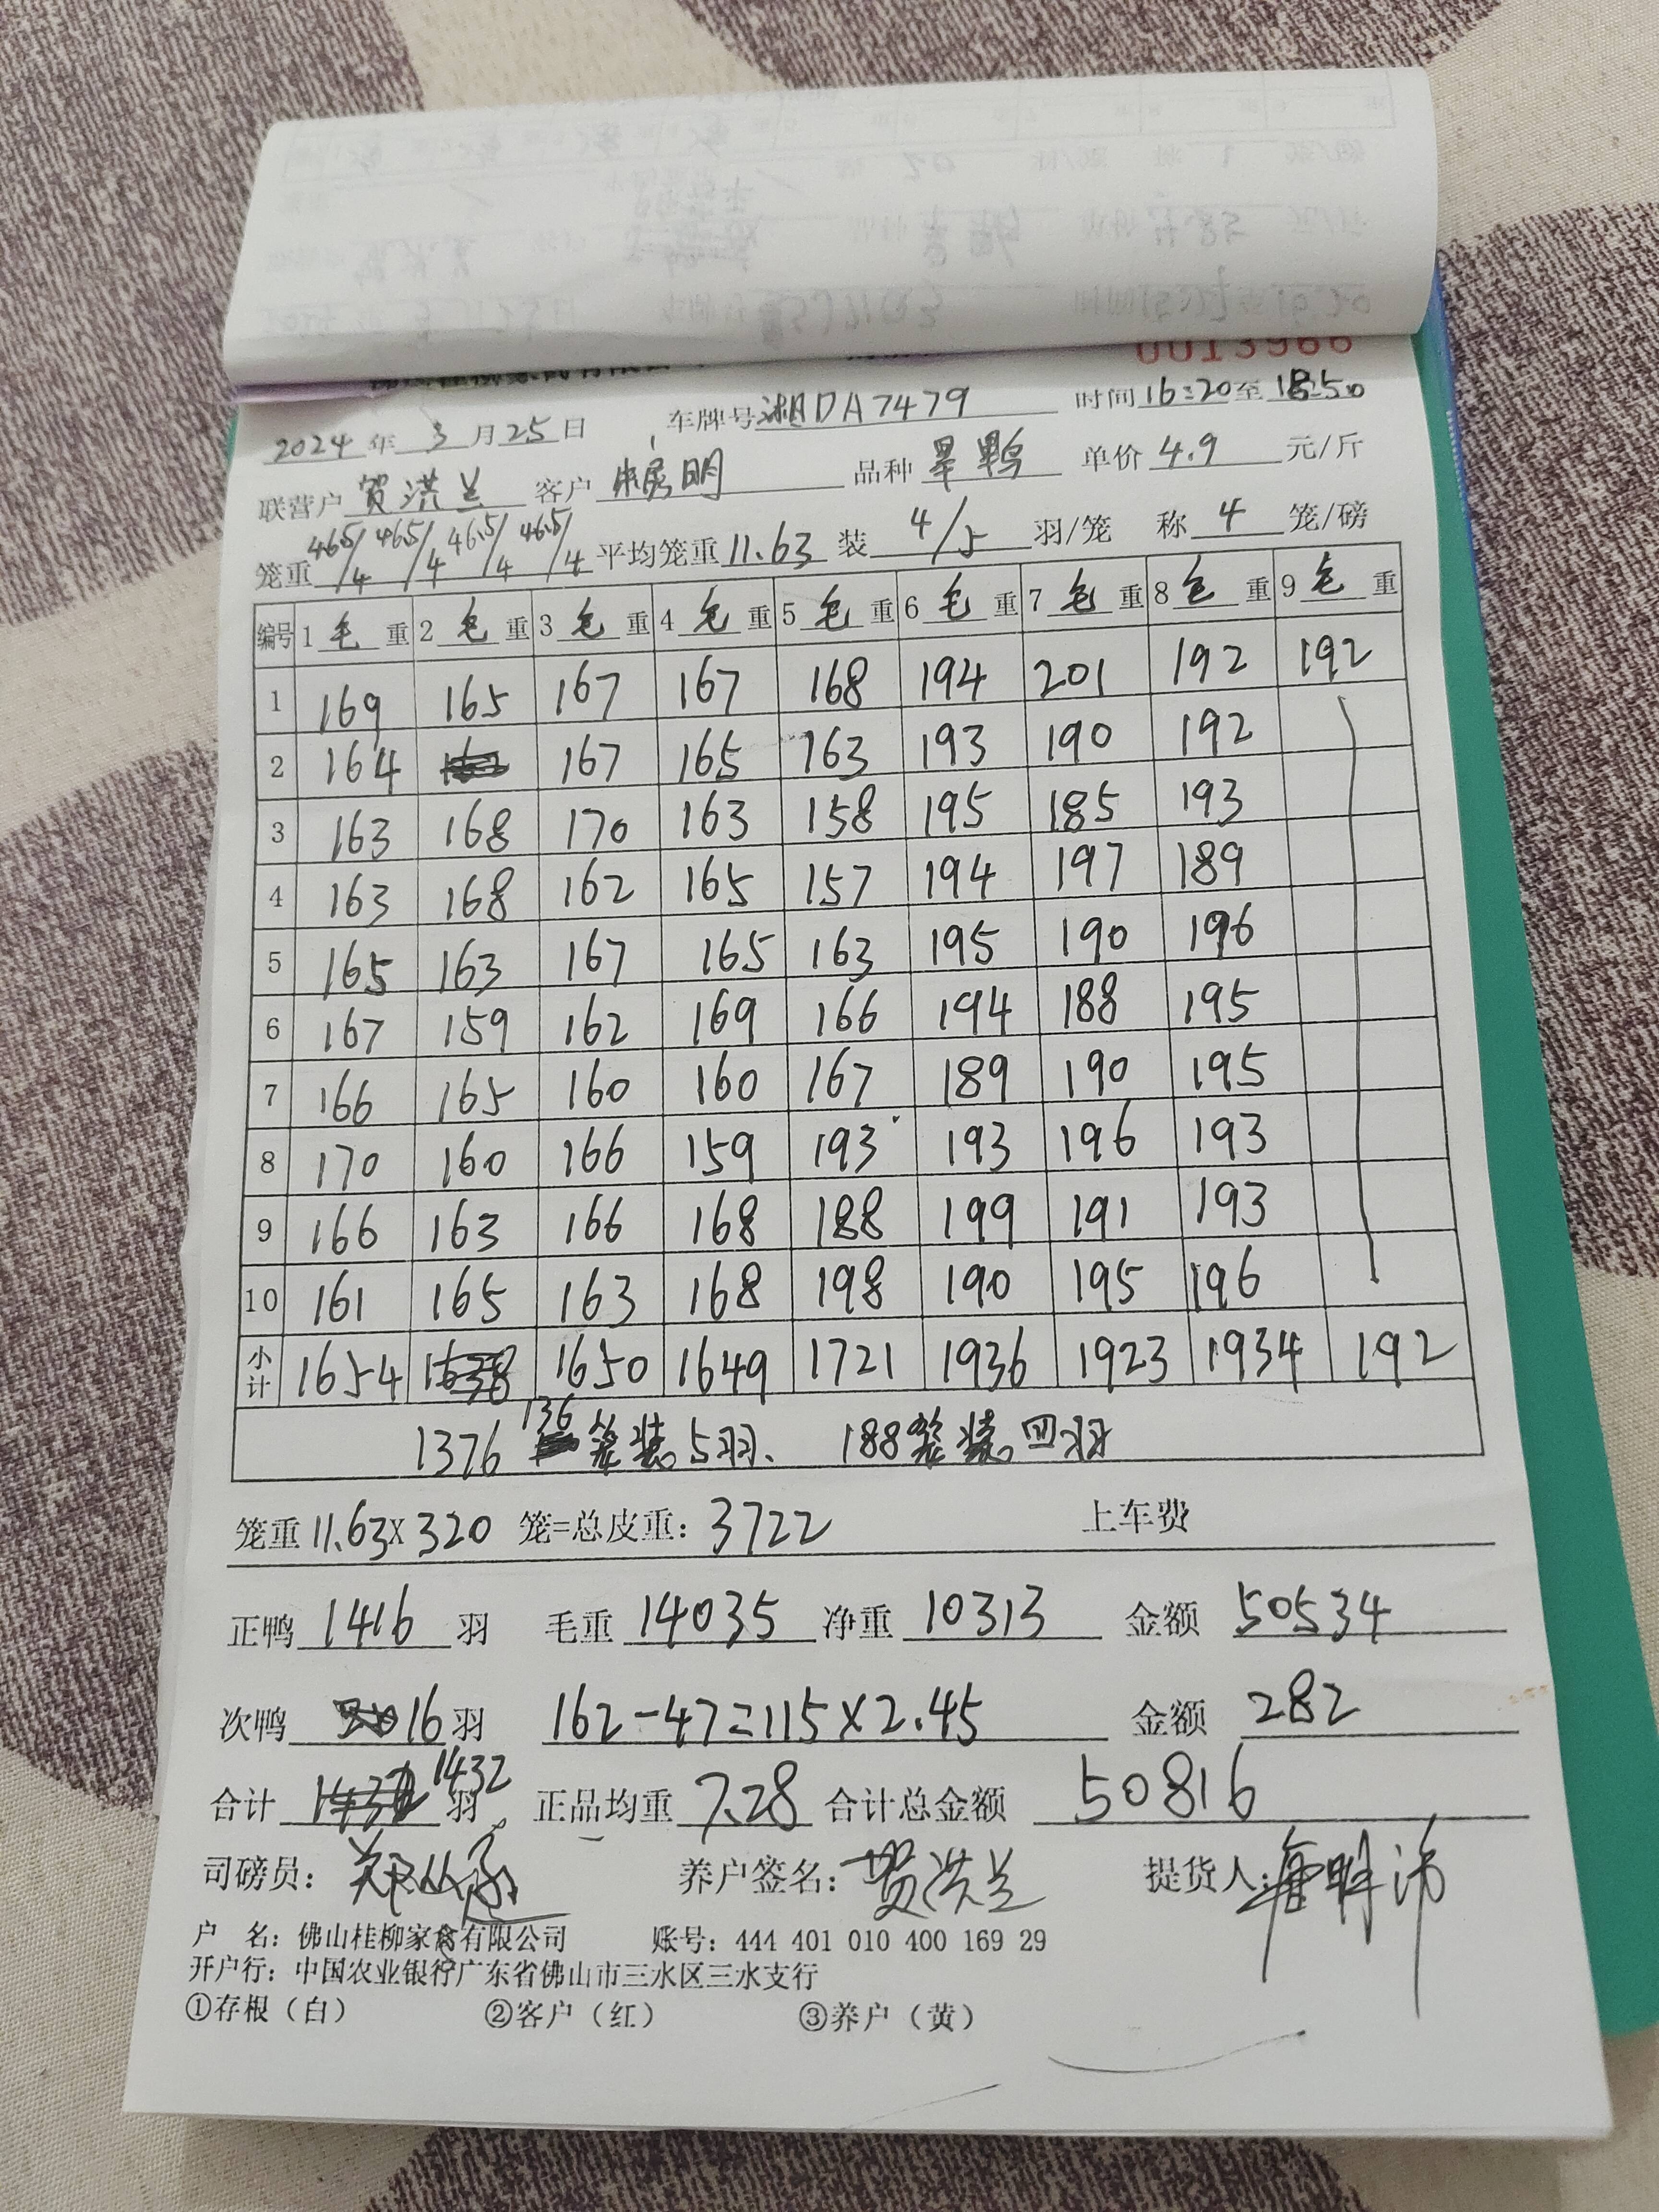 0013966
2024 年 3 月 25 日 车牌号 湘DA7479 时间 16:20 至 18:50
联营户 贺洪兰 客户 明 品种 旱鸭 单价 4.9 元/斤
笼重 46.5/4 46.5/4 46.5/4 46.5/4 平均笼重 11.63 装 4/5 羽/笼 称 4 笼/磅
编号 1 毛 重 2 毛 重 3 毛 重 4 毛 重 5 毛 重 6 毛 重 7 毛 重 8 毛 重 9 毛 重
1 169 165 167 167 168 194 201 192 192
2 164 162 167 165 163 193 190 192
3 163 168 170 163 158 195 185 193
4 163 168 162 165 157 194 197 189
5 165 163 167 165 163 195 190 196
6 167 159 162 169 166 194 188 195
7 166 165 160 160 167 189 190 195
8 170 160 166 159 193 193 196 193
9 166 163 166 168 188 199 191 193
10 161 165 163 168 198 190 195 196
小计 1654 1638 1650 1649 1721 1936 1923 1934 192
1376 136 笼装5羽、 188笼装四羽
笼重 11.63 X 320 笼=总皮重: 3722 上车费
正鸭 1416 羽 毛重 14035 净重 10313 金额 50534
次鸭 16 羽 162-47=115×2.45 金额 282
合计 1432 羽 正品均重 7.28 合计总金额 50816
司磅员: 养户签名: 贺洪兰 提货人:
户 名: 佛山桂柳家禽有限公司 账号: 444 401 010 400 169 29
开户行: 中国农业银行广东省佛山市三水区三水支行
①存根（白） ②客户（红） ③养户（黄）